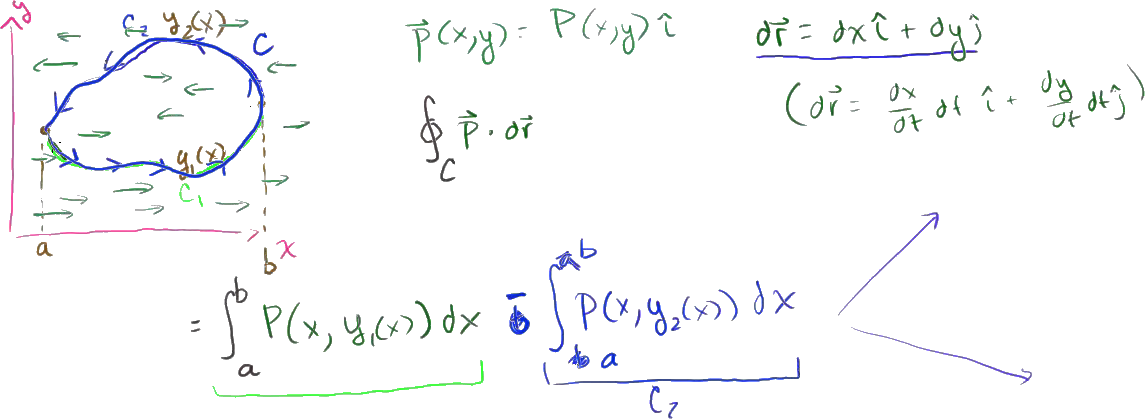 y
C₂ y₂(x)
C
y₁(x)
C₁
a
b
x
p⃗(x,y) = P(x,y) î
dr⃗ = dx î + dy ĵ
(dr⃗ = dx/dt dt î + dy/dt dt ĵ)
∮_C p⃗ · dr⃗
= ∫_a^b P(x, y₁(x)) dx - ∫_a^b P(x, y₂(x)) dx
C₂